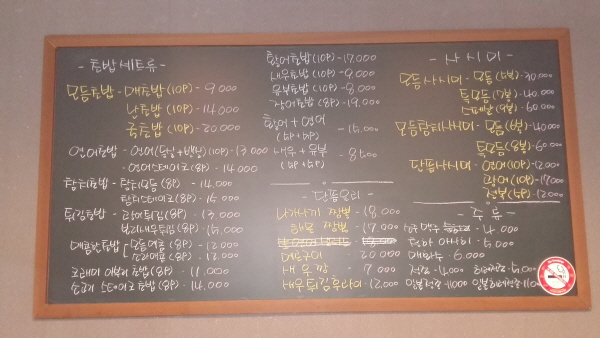 - 초밥세트류 -
모듬초밥 - 매초밥 (10P) - 9.000
난초밥 (10P) - 14.000
국초밥 (10P) - 20.000
연어초밥 - 연어(등살+뱃살) (10P) - 13.000
- 연어스테이크 (8P) - 14.000
참치초밥 - 참치모듬 (8P) - 14.000
참치스테이크 (8P) - 15.000
튀김초밥 - 고래튀김 (8P) - 13.000
보리새우튀김 (8P) - 15.000
매콤한초밥 - 모듬매콤 (8P) - 12.000
소라매콤 (8P) - 12.000
크래미 아보카도초밥 (8P) - 11.000
소고기 스테이크초밥 (8P) - 14.000
황어초밥 (10P) - 17.000
새우초밥 (10P) - 9.000
유부초밥 (10P) - 8.000
장어초밥 (8P) - 19.000
황어 + 연어
(5P+5P) - 15.000
새우 + 유부
(5P+5P) - 8.500
- 단품요리 -
나가사끼 짬뽕 - 18.000
해물 짬뽕 - 17.000
메로구이 20.000
새우깡 - 7.000
새우튀김후라이 - 12.000
- 사시미 -
모듬사시미 - 모듬 (5종) - 30.000
특모듬 (7종) - 40.000
스페샬 (9종) - 60.000
모듬참치사시미 - 모듬 (6종) - 40.000
특모듬 (8종) - 60.000
단품사시미 - 연어 (10P) - 12.000
황어 (10P) - 17.000
전복 (5P) - 12.000
- 주류 -
소주 맥주 - 4.000
청하 아사히 - 5.000
매화수 - 6.000